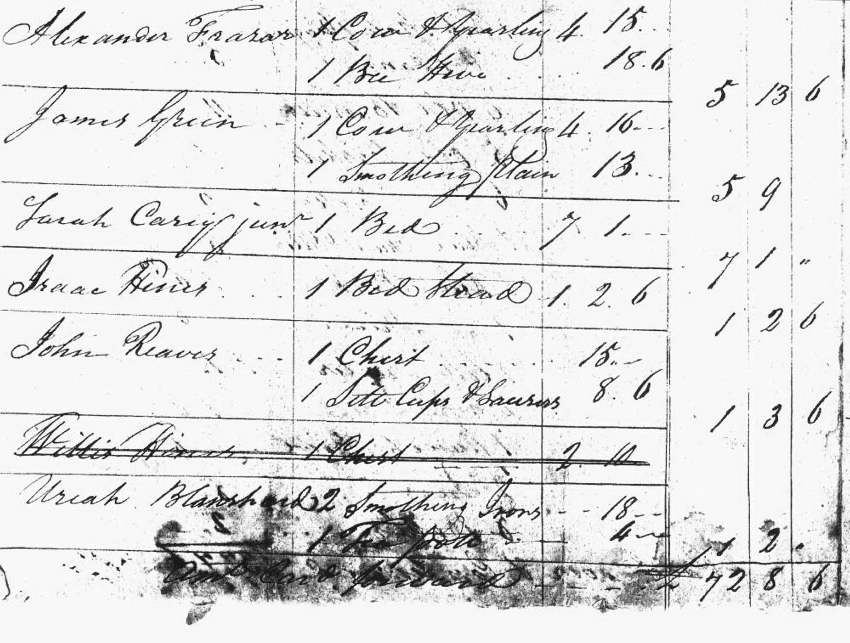 Alexander Frazar 1 Cow & Yearling 4 15
1 Bee Hive 18 6
5 13 6
James Green 1 Cow & Yearling 4 16
1 Smothing Plain 13
5 9
Sarah Carey junr 1 Bed 7 1
7 1 "
Isaac Hines 1 Bed Stead 1 2 6
1 2 6
John Reaves 1 Chest 15
1 Sett Cups & Saucers 8 6
1 3 6
Willis Hines 1 Chest 2 10
Uriah Blanshard 2 Smothing Irons 18
1 pott 4
1 2 "
Amt Card forward £ 72 8 6